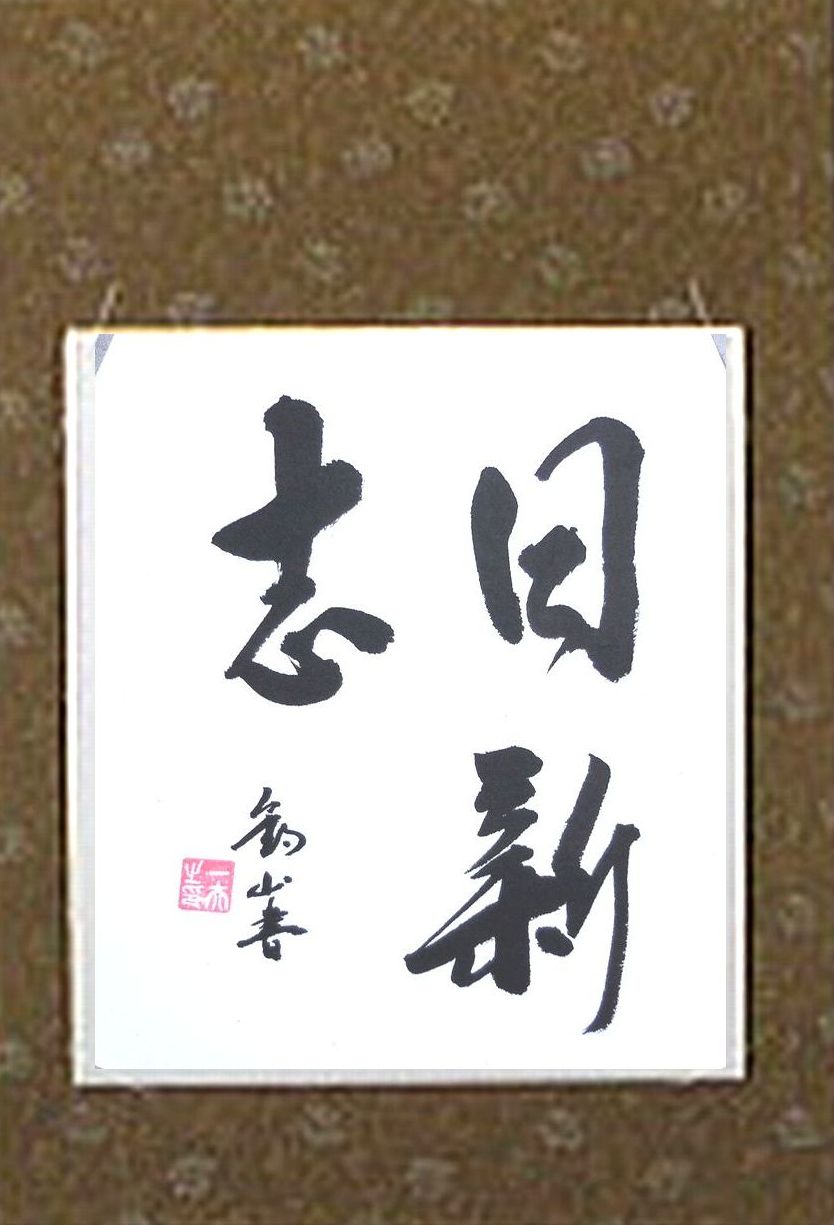 日新
志
釣山書